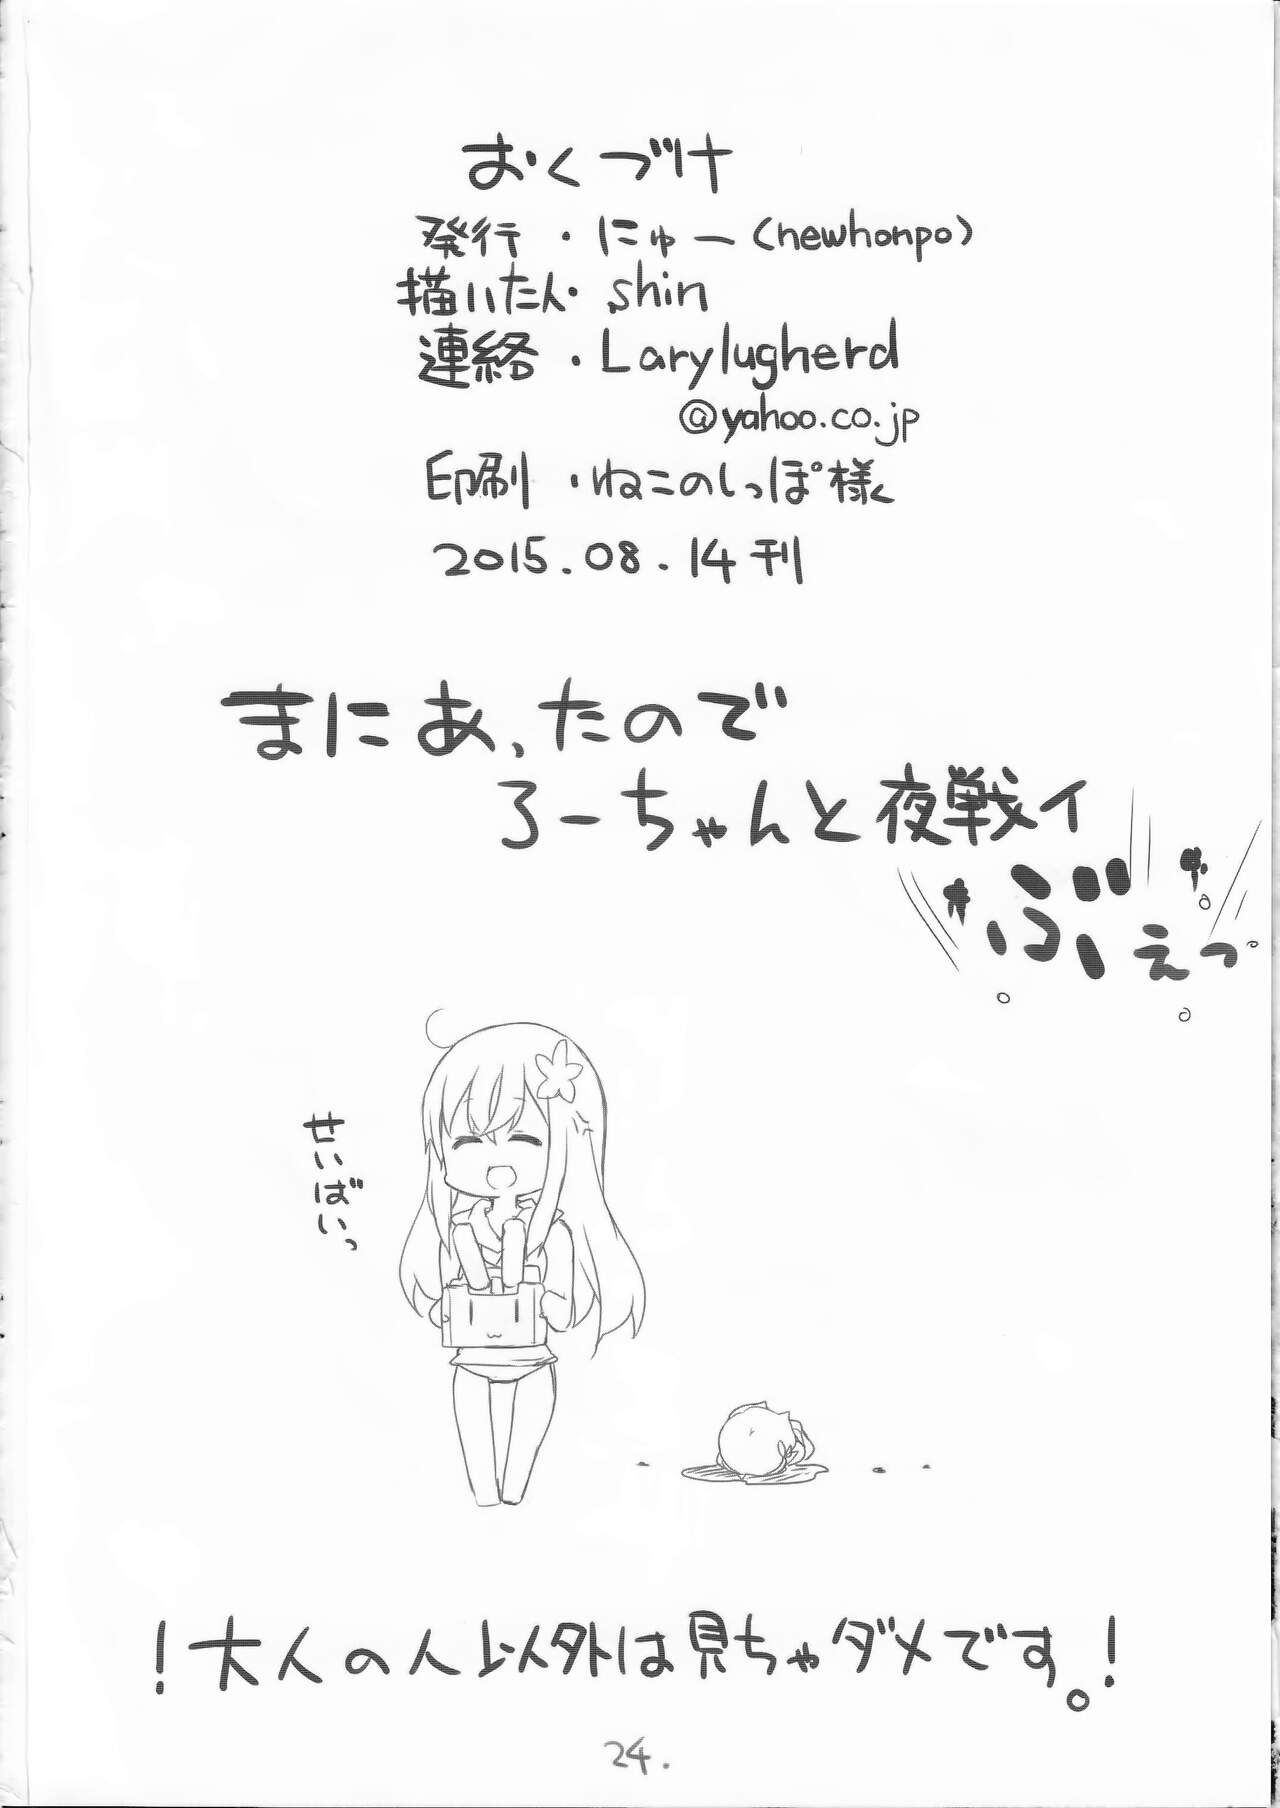 おくづけ
発行・にゅー(newhonpo)
描いたん・shin
連絡・Larylugherd
@yahoo.co.jp
印刷・ねこのしっぽ様
2015.08.14刊
まにあったので
ろーちゃんと夜戦ィ
ぶぇっ
せいばいっ
!大人の人以外は見ちゃダメです。!
24.